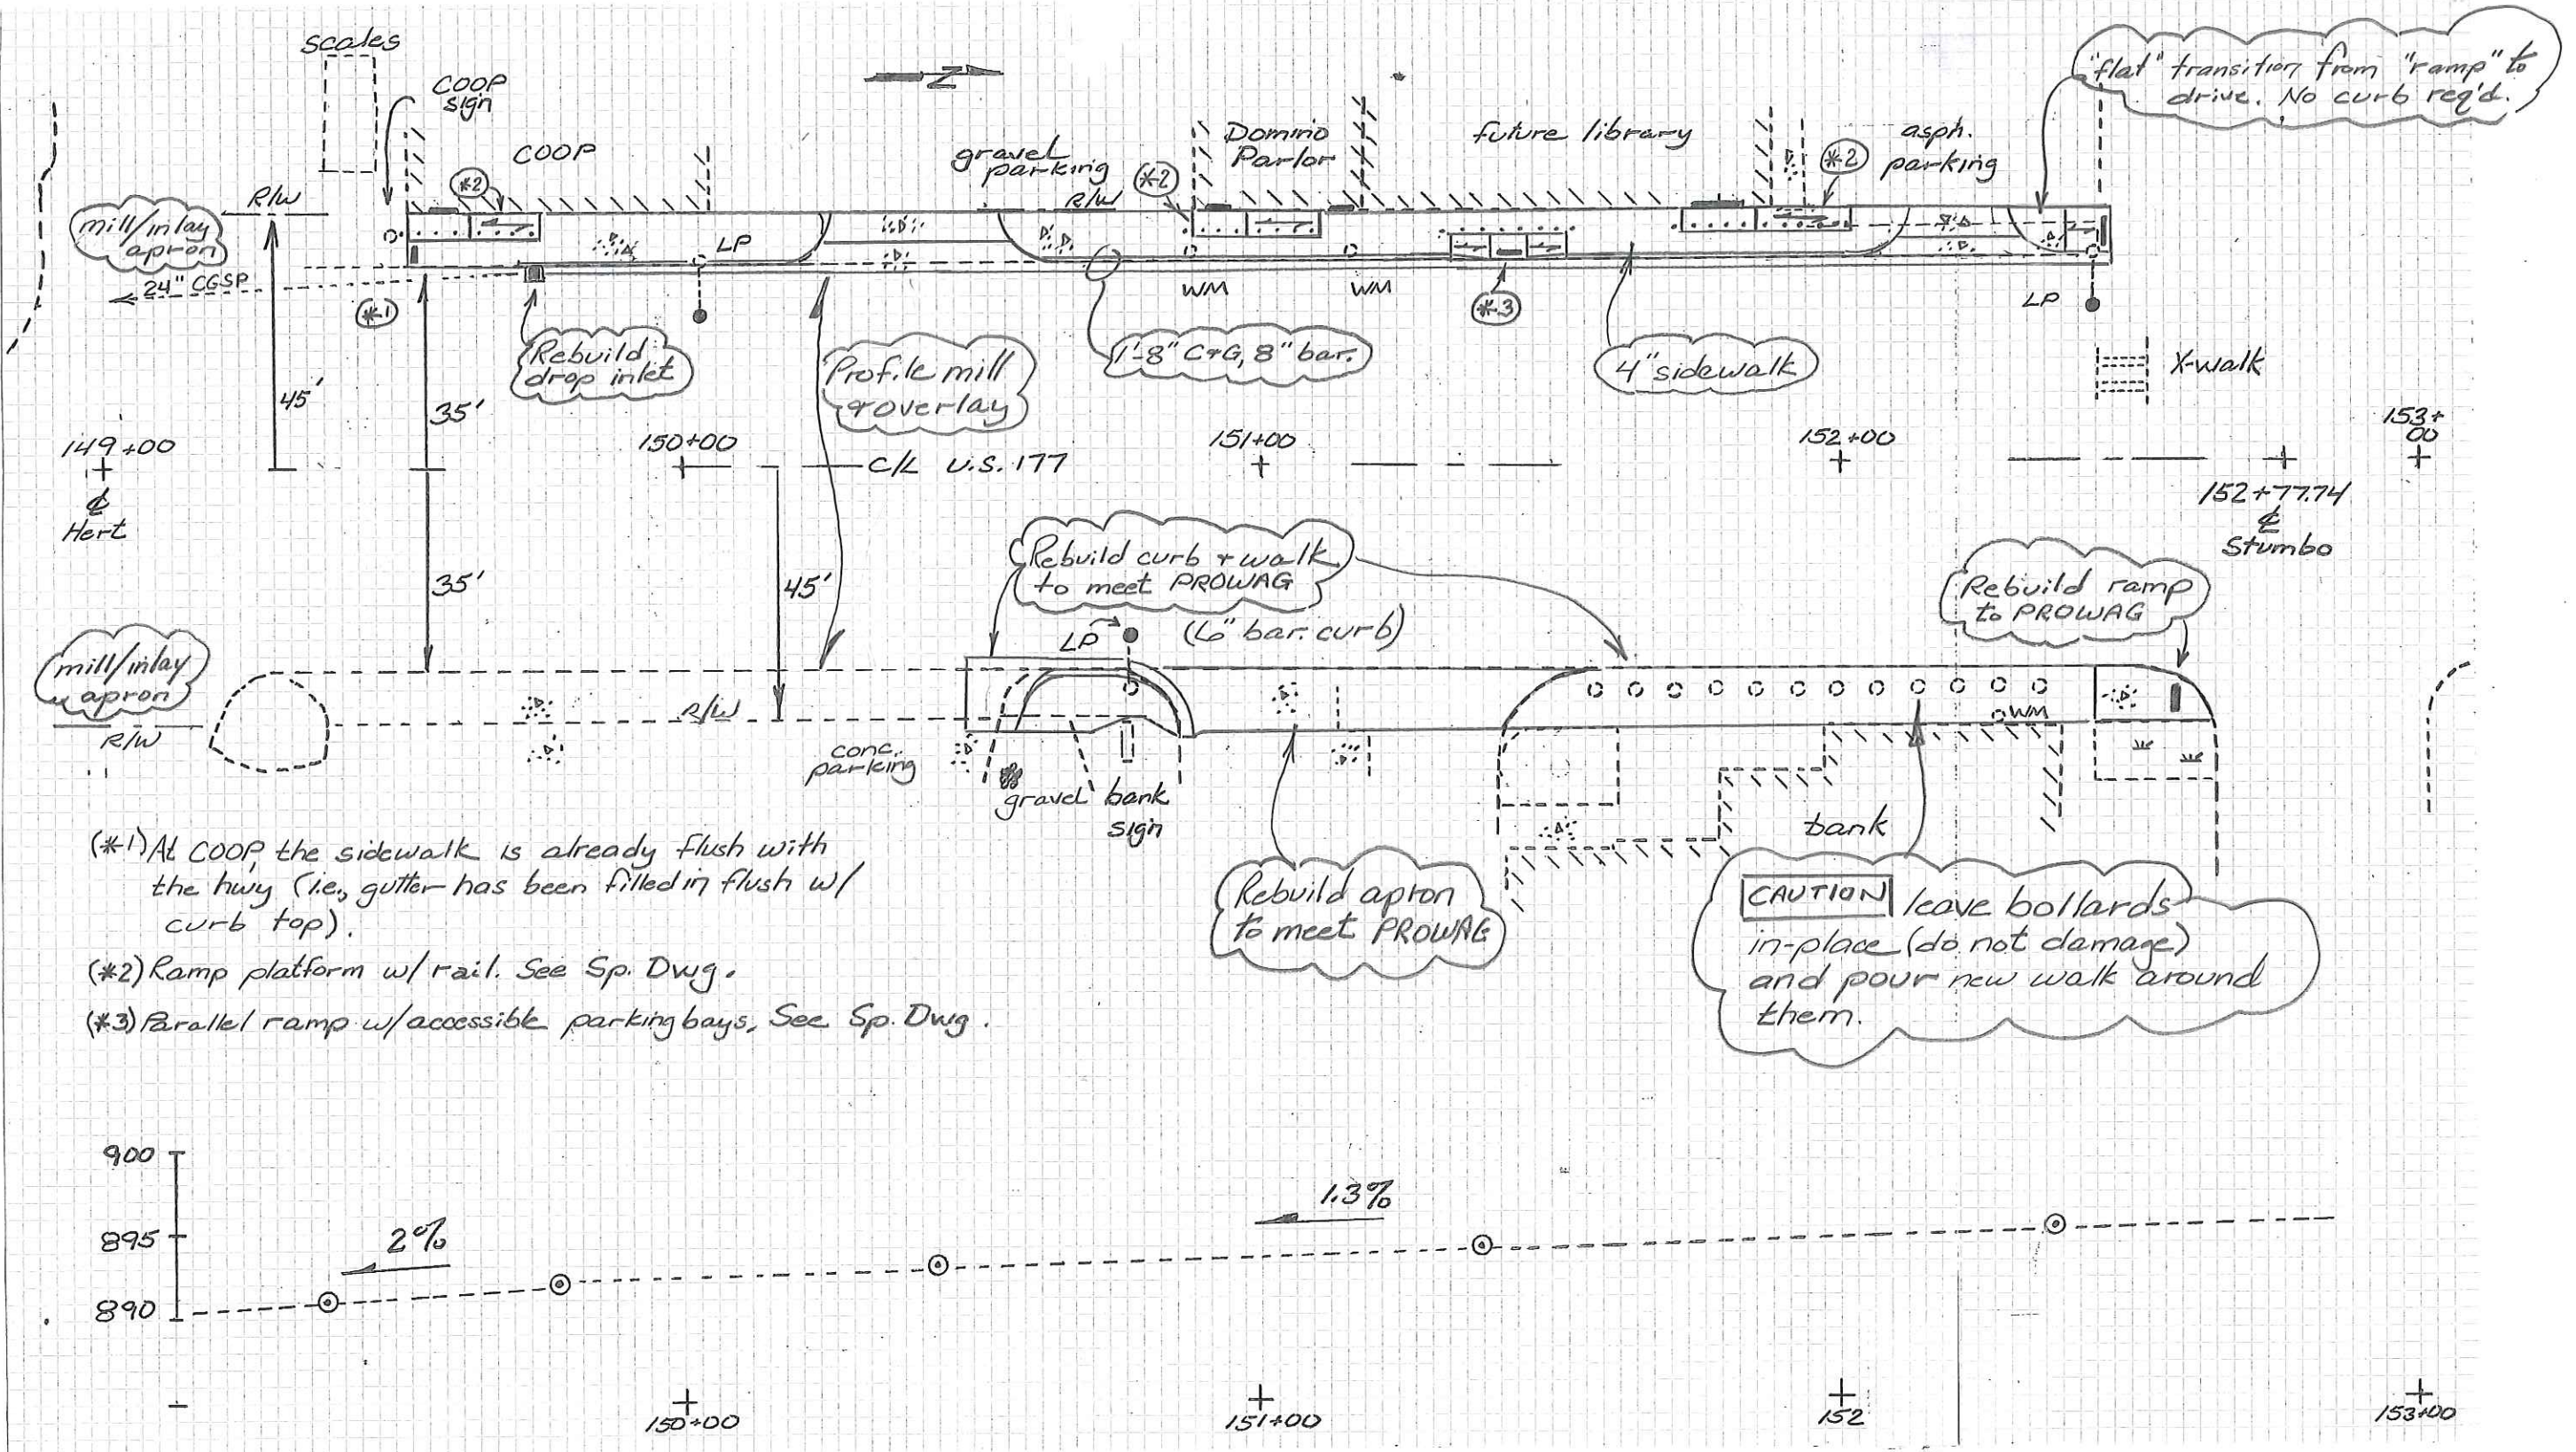 scales
COOP
sign
COOP
*2
Z
gravel
parking
*2
R/W
Domino
Parlor
future library
*2
asph.
parking
"flat" transition from "ramp" to
drive. No curb req'd.
R/W
mill/inlay
apron
24" CGSP
*1
LP
WM
WM
*3
LP
Rebuild
drop inlet
Profile mill
& overlay
1'-8" C&G, 8" bar.
4" sidewalk
X-walk
45'
35'
149+00
℄
Hert
150+00
C/L U.S. 177
151+00
152+00
153+
00
152+77.74
℄
Stumbo
35'
45'
Rebuild curb & walk
to meet PROWAG
LP
(6" bar. curb)
Rebuild ramp
to PROWAG
mill/inlay
apron
R/W
R/W
conc.
parking
gravel
bank
sign
WM
bank
Rebuild apron
to meet PROWAG
CAUTION leave bollards
in-place (do not damage)
and pour new walk around
them.
(*1) At COOP, the sidewalk is already flush with
the hwy (i.e., gutter has been filled in flush w/
curb top).
(*2) Ramp platform w/ rail. See Sp. Dwg.
(*3) Parallel ramp w/ accessible parking bays. See Sp. Dwg.
900
895
890
2%
1.3%
150+00
151+00
152
153+00